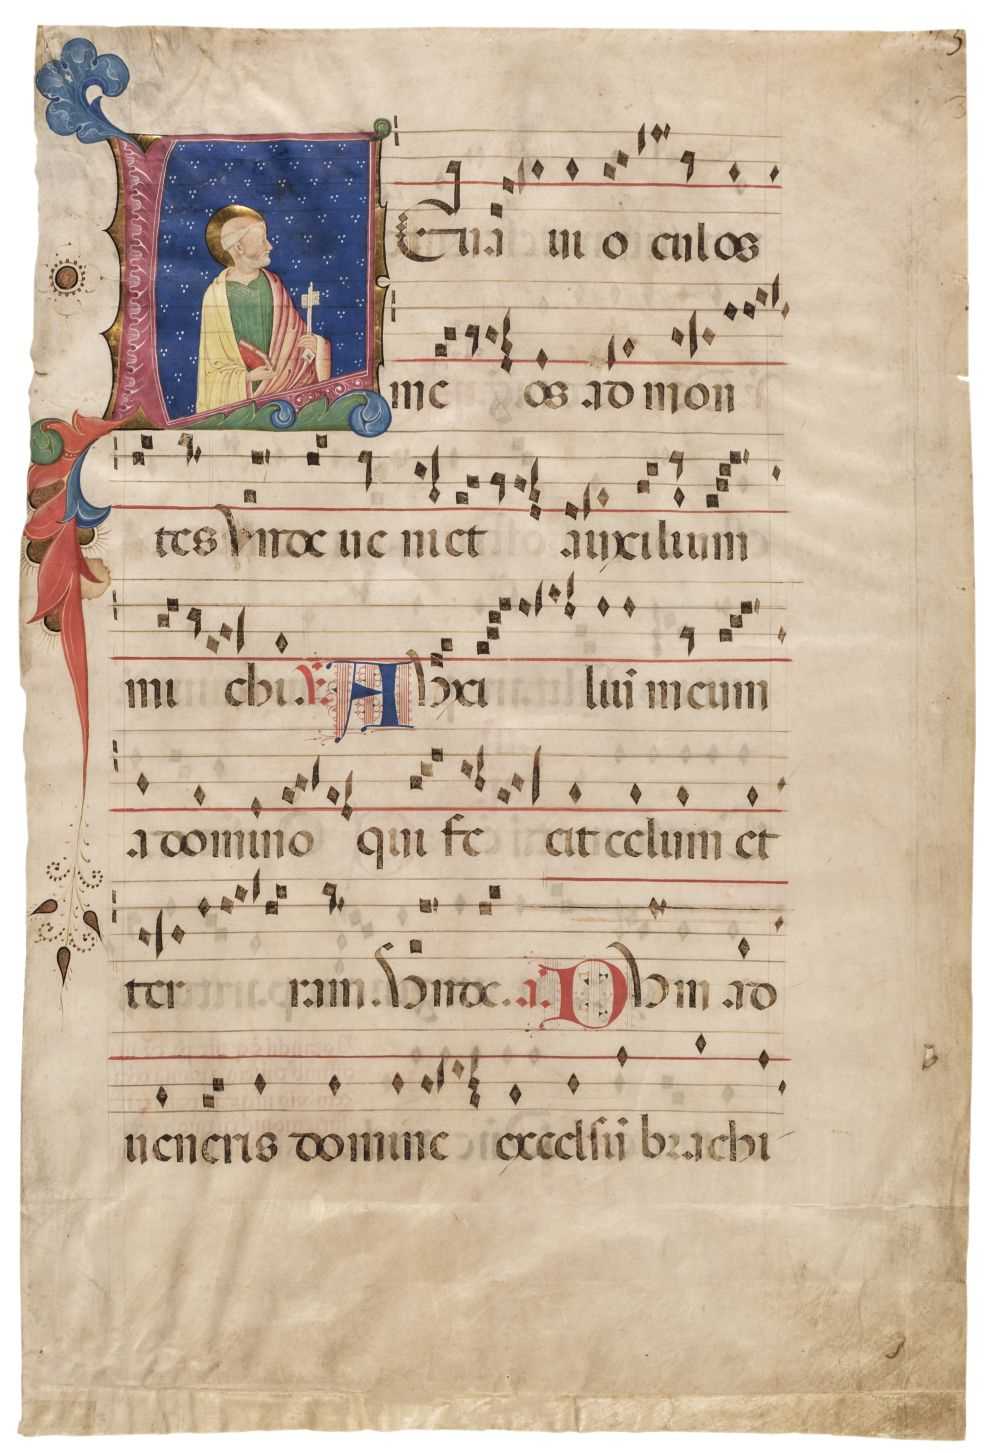 Leuaui in oculos
meos ad mon
tes unde ueniet auxilium
michi. V. Auxilium meum
a domino qui fecit celum et
terram. Unde. a. Dum ad
ueneris domine excelsum brachi